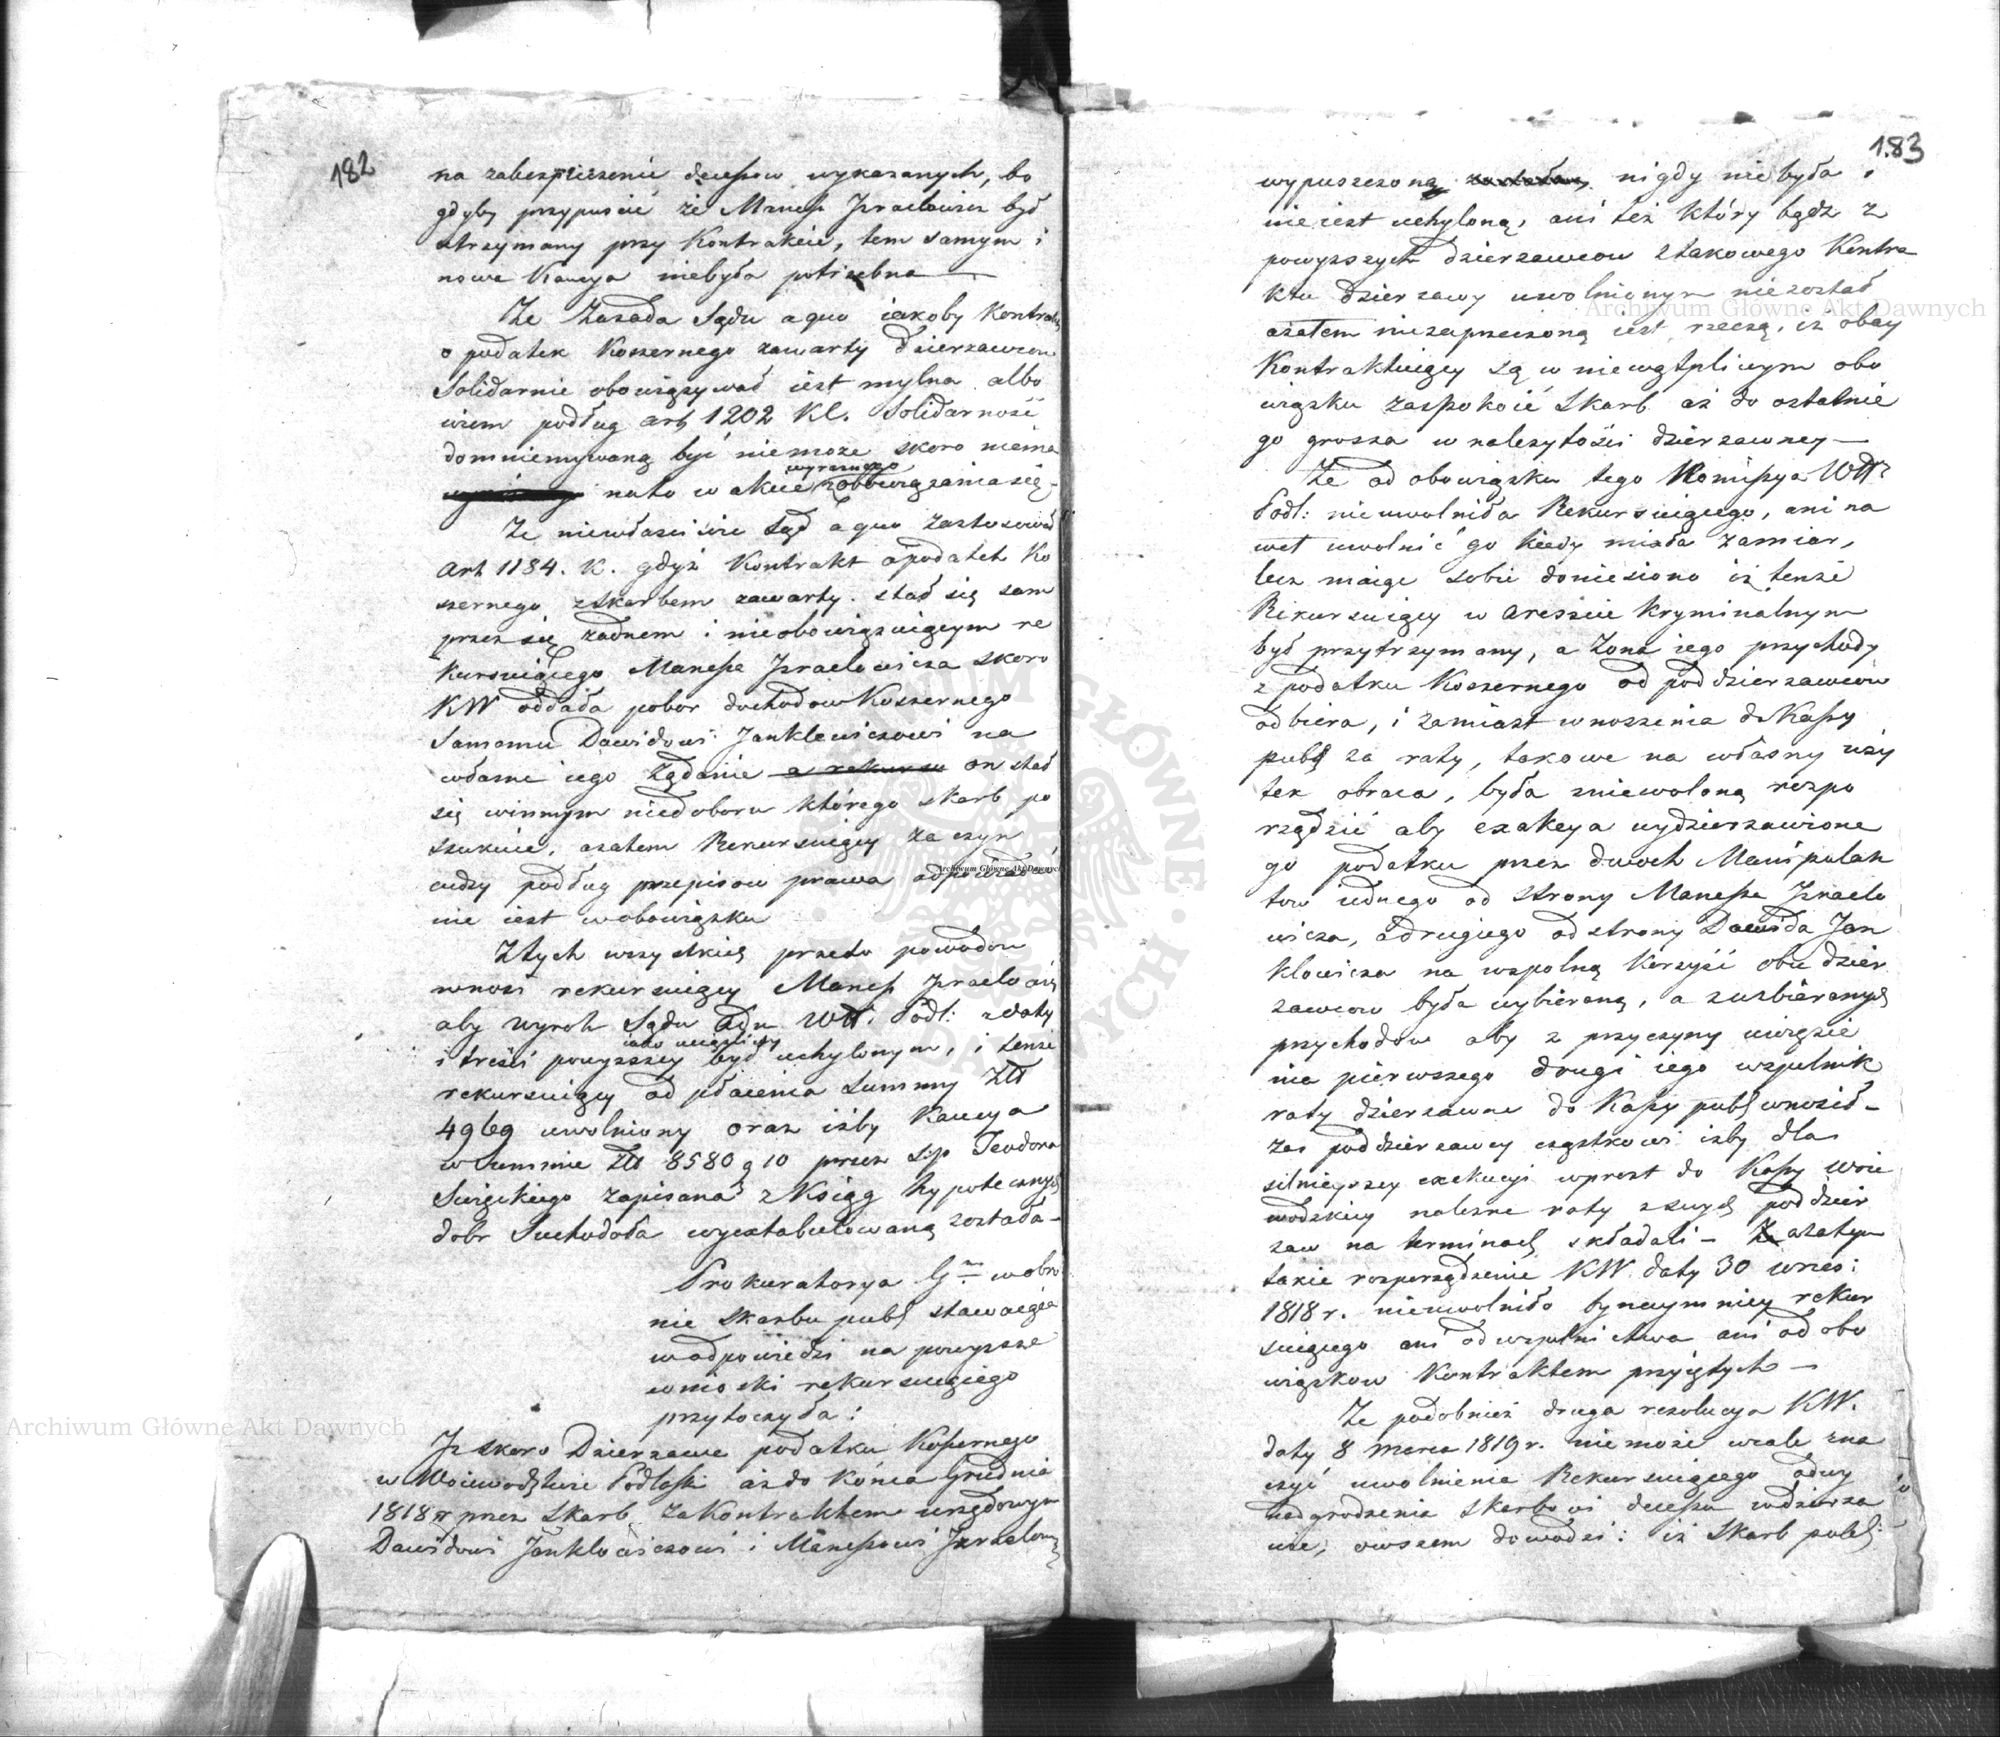 182
na zabespieczenie decessow wykazanych, bo
gdyby przypuscić że Maness Jzraelowicz był
utrzymany przy Kontrakcie, tem samym i
nowa Kaucya niebyła potrzebna —
Że Zasada Sądu a quo iakoby Kontrakt
o podatek Koszernego zawarty Dzierzawcow
Solidarnie obowiązywał iest mylna albo
wiem podług art 1202 KC. Solidarność
domniemywaną być niemoze skoro niema
na to w akcie wyraznego zobowiązania się –
Że niewłasciwie Sąd a quo zastosował
art 1184. K. gdyż Kontrakt o podatek Ko
szernego z Skarbem zawarty. stał się sam
przez się żadnem i nieobowiązuiącym re
kursuiącego Manessa Jzraelowicza skoro
KW oddała pobor dochodow Koszernego
Samemu Dawidowi Janklewiczowi na
własne iego żądanie a rekursu on stał
się winnym niedoboru którego skarb po
szukuie, azatem Rekursuiący za czyn
cudzy podług przepisow prawa odpowiadać
nie iest wobowiązku
Z tych wszystkich przeto powodow
wnosi rekursuiący Maness Jzraelowicz
aby wyrok Sądu Adm WM. Podl: z daty
i treści powyższey iako uciążliwy był uchylonym, i tenże
rekursuiący od płacenia Summy Złł
4969 uwolniony oraz iżby Kaucya
w Summie Złł 8580 g 10 przez s:p Teodora
Swięckiego zapisana z Ksiąg hypotecznych
dobr Suchodoła wyextabulowaną została –
Prokuratorya G<sup>na</sup> w obro
nie Skarbu publ stawaiąca
w odpowiedzi na powyzsze
wnioski rekursuiącego
przytoczyła:
Jż skoro Dzierzawa podatku Kossernego
w Woiewodztwie Podlaski aż do końca Grudnia
1818 r przez Skarb za Kontraktem urzędowym
Dawidowi Janklowiczowi i Manessowi Jzraelow
183
wypuszczoną nigdy niebyła i
nieiest uchyloną, ani też który bądz z
powyzszych Dzierzawcow z takowego Kontra
ktu dzierzawy uwolnionym niezostał
azatem niezaprzeczoną iest rzeczą, iż obay
Kontraktuiący są w niewątpliwym obo
wiązku zaspokoić Skarb aż do ostatnie
go grosza w nalezytości dzierzawney —
Że od obowiązku tego Komissya Wtt
Podl: nieuwolniła Rekursuiącego, ani na
wet uwolnić go kiedy miała zamiar,
lecz maiąc sobie doniesiono iż tenże
Rekursuiący w aresscie kryminalnym
był przytrzymany, a Zona iego przychody
z podatku Koszernego od poddzierzawcow
odbiera, i zamiast wnoszenia do Kassy
publ za raty, takowe na własny uży
tek obraca, była zniewoloną rozpo
rządzić aby exakcya wydzierzawione
go podatku przez dwoch Manipulan
tow iednego od strony Manessa Jzraelo
wicza, a drugiego od strony Dawida Jan
klowicza na wspolną korzyść obu dzier
zawcow była wybieraną, a z uzbieranych
przychodow aby z przyczyny uwięzie
nia pierwszego drugi iego wspulnik
raty dzierzawne do Kassy publ wnosił –
zas poddzierzawcy cząstkowi iżby dla
silnieyszey exekucyi wprost do Kassy Woie
wodzkiey nalezne raty z swych poddzier
zaw na terminach składali – azatym
takie rozporządzenie KW. daty 30 wrześ:
1818 r. nieuwolniło bynaymniey rekur
suiącego ani od wspulnictwa ani od obo
wiązkow Kontraktem przyiętych —
Że podobnież druga rezolucya KW.
daty 8 marca 1819 r. niemoże wcale zna
czyć uwolnienia Rekursuiącego od wy
nadgrodzenia Skarbowi decessu w dzierza
wie, owszem dowodzi: iż Skarb publ:
Archiwum Główne Akt Dawnych
Archiwum Główne Akt Dawnych
Archiwum Główne Akt Dawnych